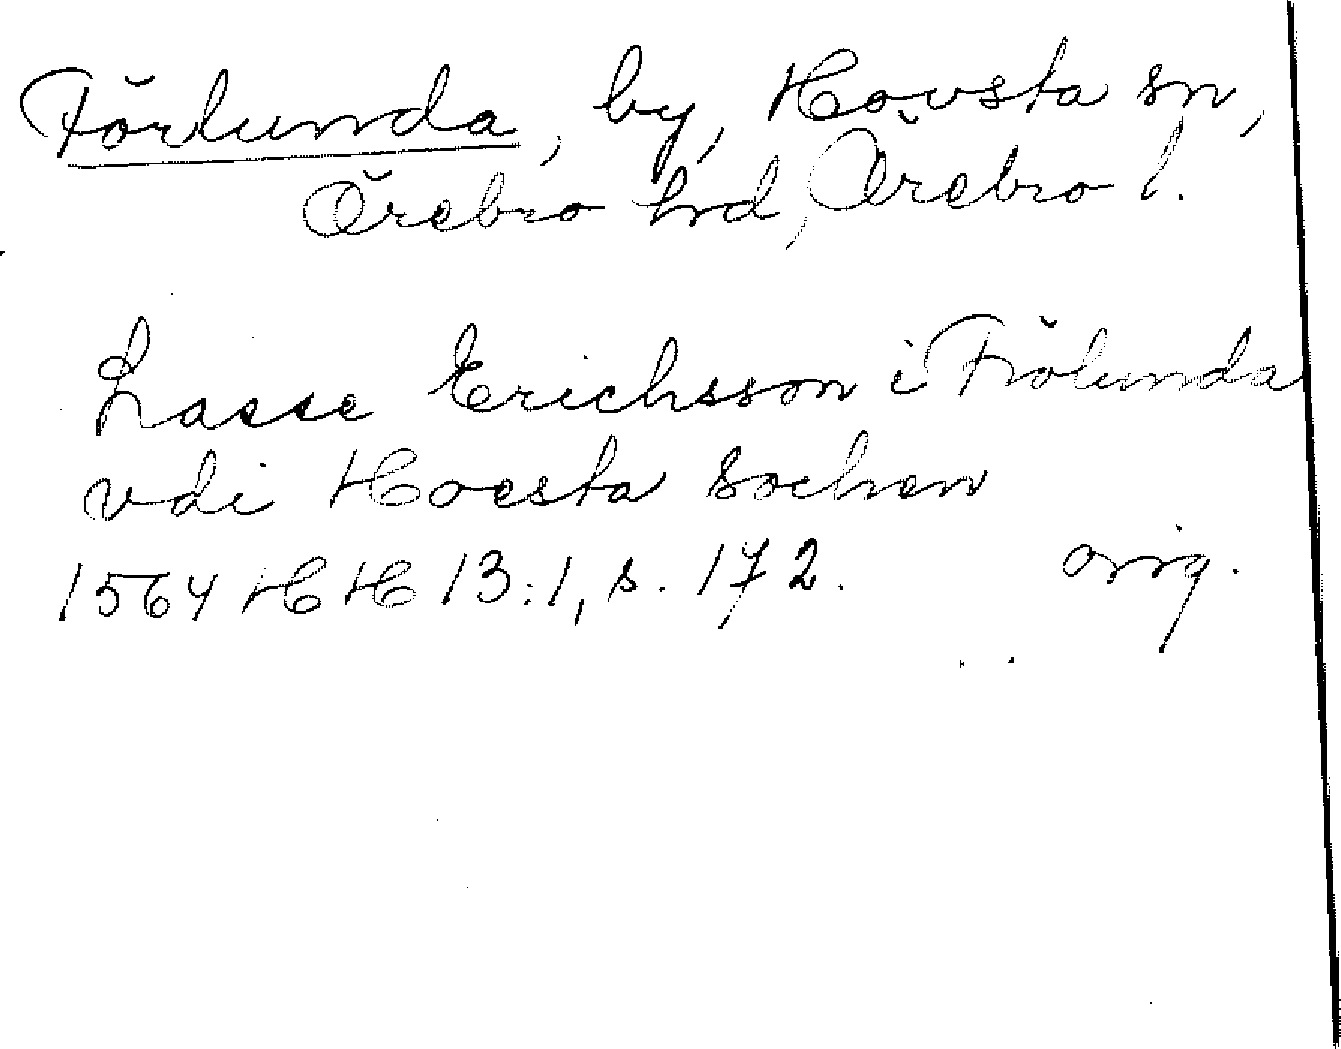 Förlunda, by, Hovsta sn,
Örebro hrd, Örebro l.
Lasse Erichsson i Frölunda
vdi Hoesta sochen
1564 HH 13:1, s. 172. orig.